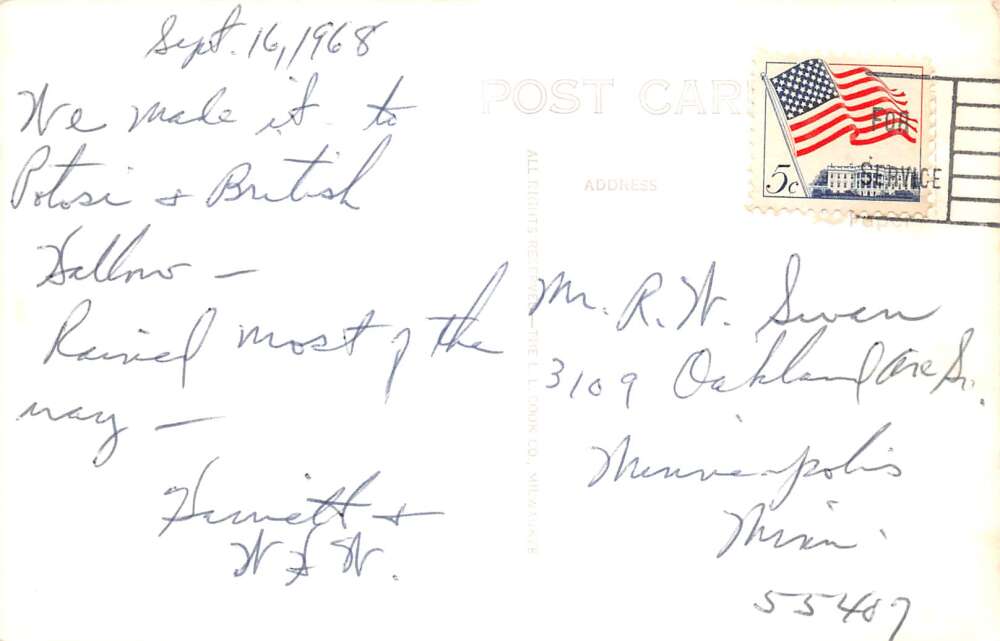 Sept. 16, 1968
We made it to
Potosi & British
Hallow —
Rained most of the
way —
Harriett &
W S W.
POST CARD
ADDRESS
ALL RIGHTS RESERVED—THE L. L. COOK CO., MILWAUKEE
5c
FOR
SERVICE
Paper
Mr. R. W. Swan
3109 Oakland Ave So.
Minneapolis
Minn.
55407